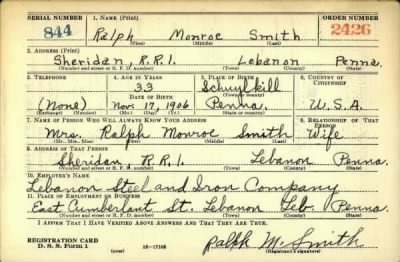 SERIAL NUMBER 1. NAME (Print) ORDER NUMBER
844 Ralph Monroe Smith 2426
(First) (Middle) (Last)
2. ADDRESS (Print)
Sheridan, R.R.1. Lebanon Penna.
(Number and street or R. F. D. number) (Town) (County) (State)
3. TELEPHONE 4. AGE IN YEARS 5. PLACE OF BIRTH 6. COUNTRY OF CITIZENSHIP
33 Schuylkill
DATE OF BIRTH (Town or county)
(None) Nov. 17, 1906 Penna. U.S.A.
(Exchange) (Number) (Mo.) (Day) (Yr.) (State or country)
7. NAME OF PERSON WHO WILL ALWAYS KNOW YOUR ADDRESS 8. RELATIONSHIP OF THAT PERSON
Mrs. Ralph Monroe Smith Wife
(Mr., Mrs., Miss) (First) (Middle) (Last)
9. ADDRESS OF THAT PERSON
Sheridan, R.R.1. Lebanon Penna.
(Number and street or R. F. D. number) (Town) (County) (State)
10. EMPLOYER'S NAME
Lebanon Steel and Iron Company
11. PLACE OF EMPLOYMENT OR BUSINESS
East Cumberlant St. Lebanon Leb. Penna.
(Number and street or R. F. D. number) (Town) (County) (State)
I AFFIRM THAT I HAVE VERIFIED ABOVE ANSWERS AND THAT THEY ARE TRUE.
REGISTRATION CARD
D. S. S. Form 1 (over) 16-17105 Ralph M. Smith
(Registrant's signature)